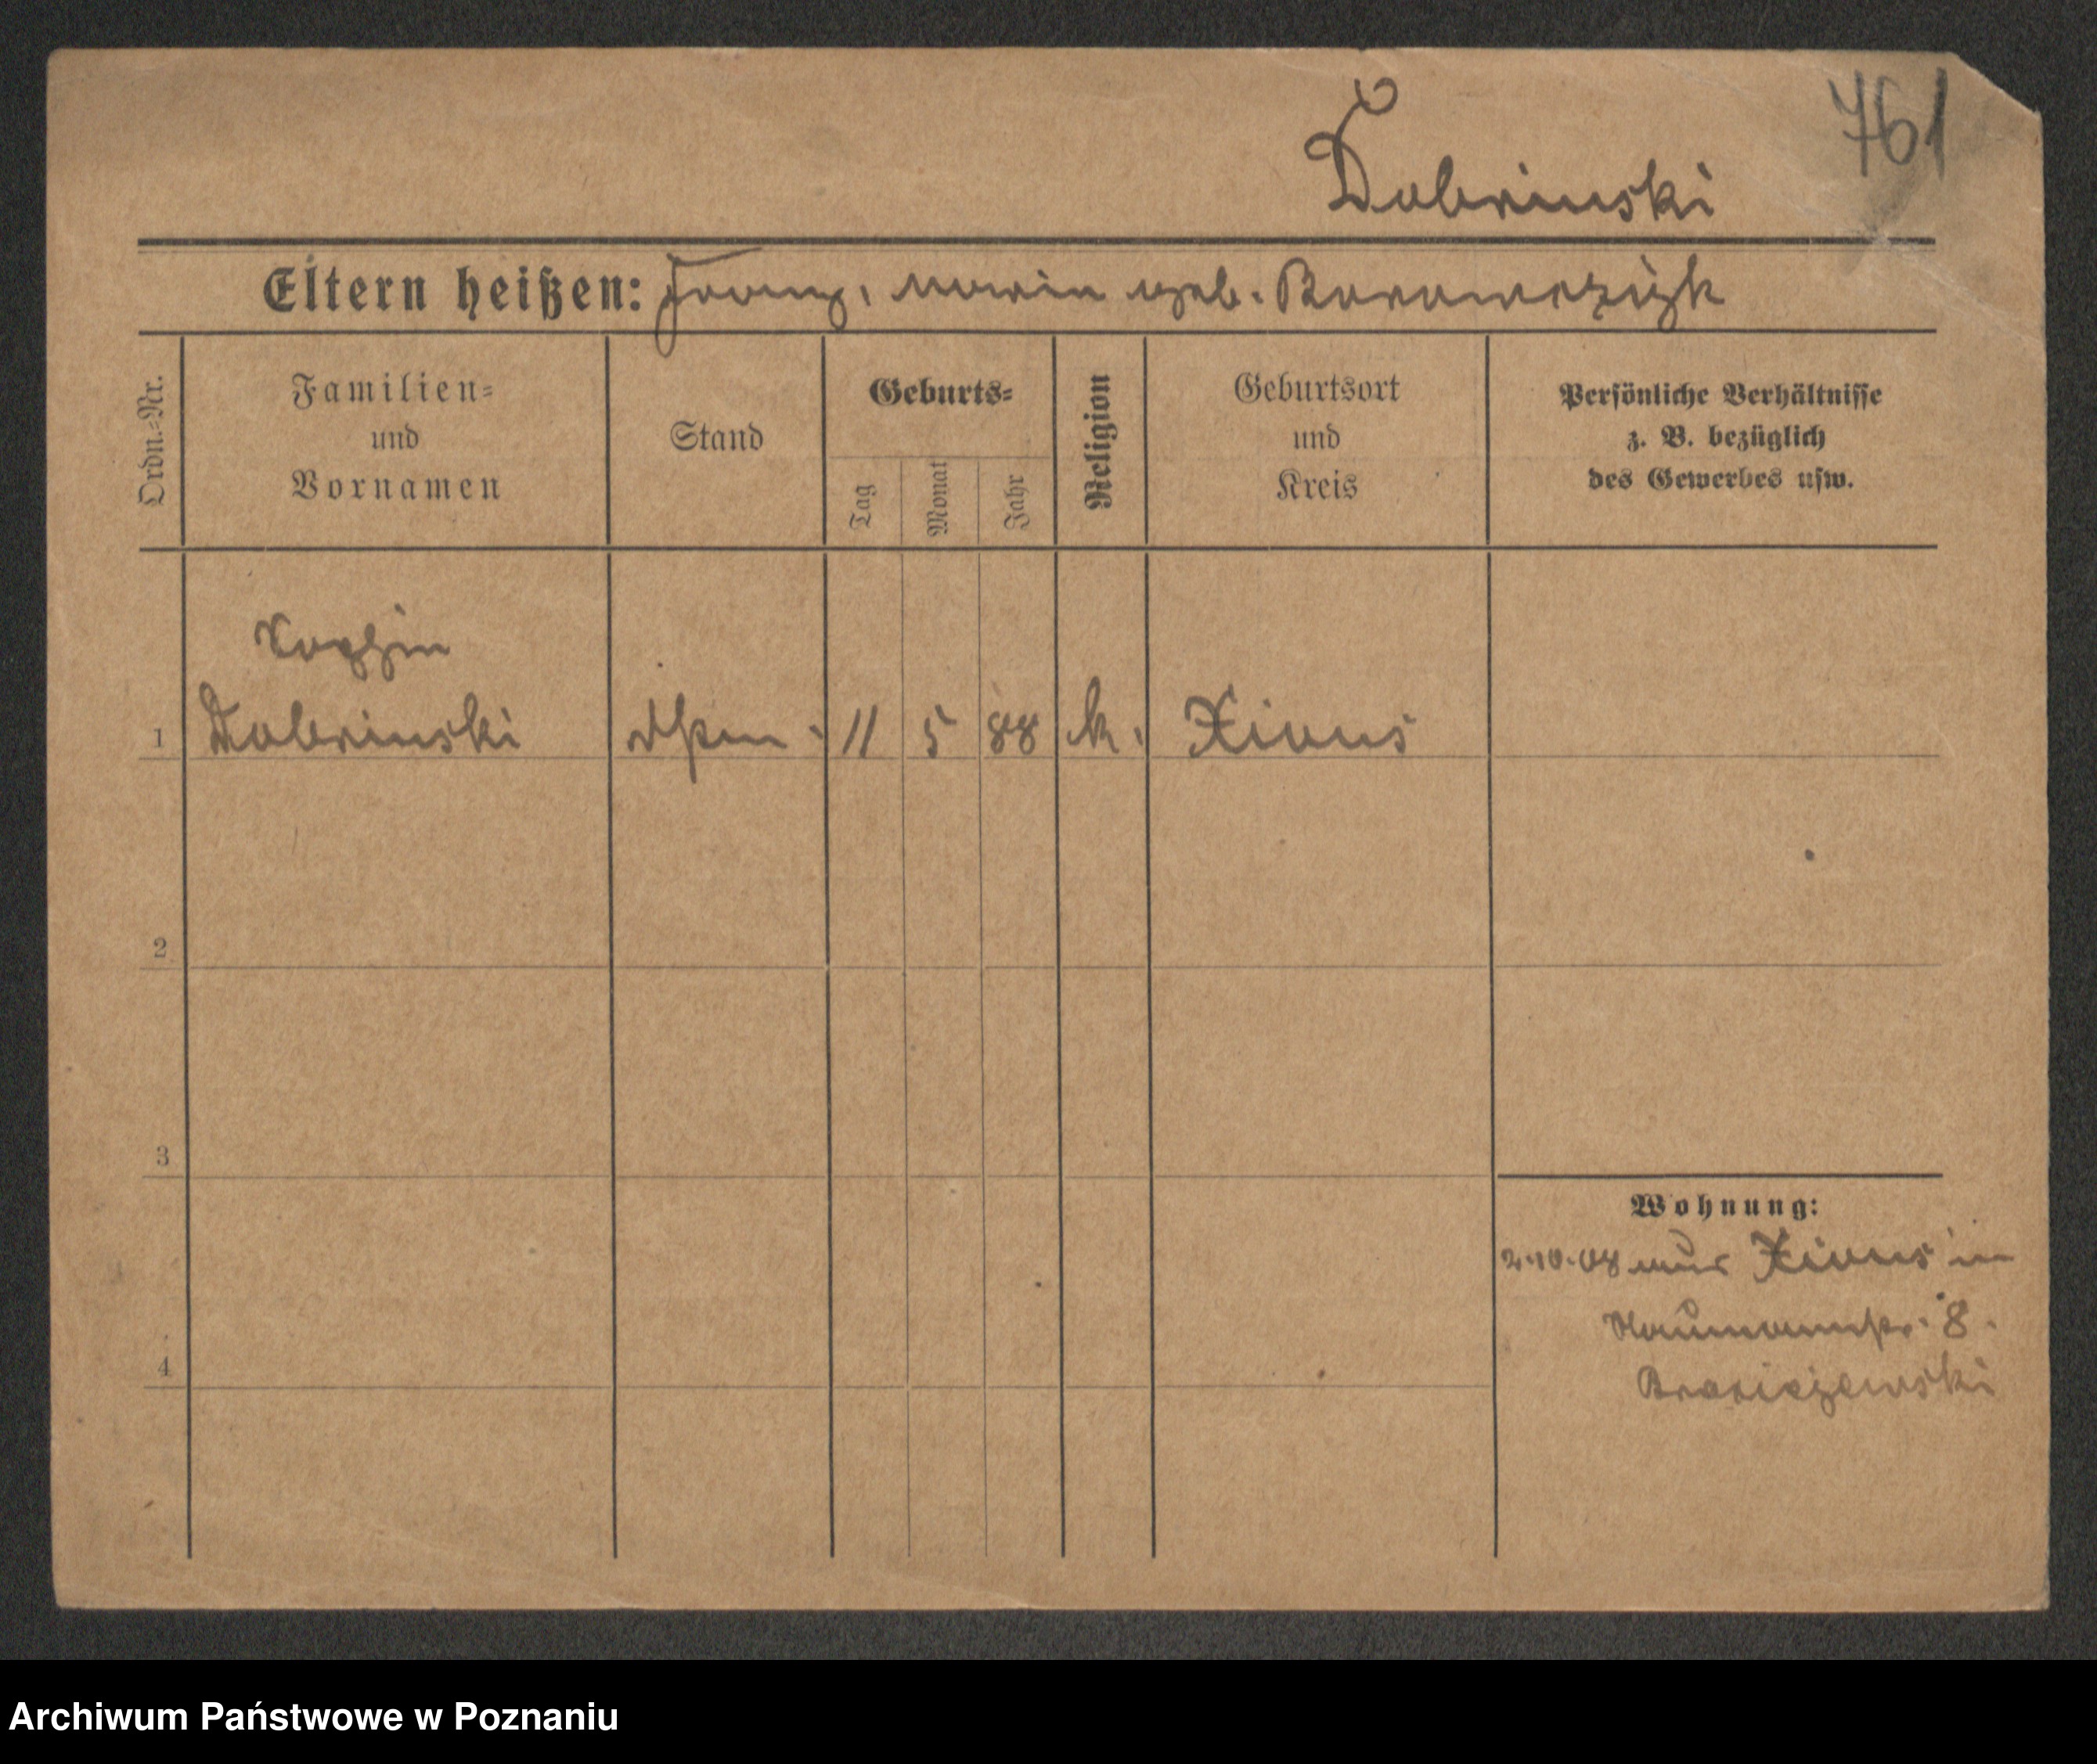 761
Dobrinski
Eltern heißen: Franz, Marie geb. Borowczyk
Ordn.=Nr.
Familien=
und
Vornamen
Stand
Geburts=
Tag
Monat
Jahr
Religion
Geburtsort
und
Kreis
Persönliche Verhältnisse
z. B. bezüglich
des Gewerbes usw.
Sophie
1 Dobrinski 11 5 88 k. Xions
2
3
4
Wohnung:
2.10.08 aus Xions in
Naumannstr. 8.
Archiwum Państwowe w Poznaniu